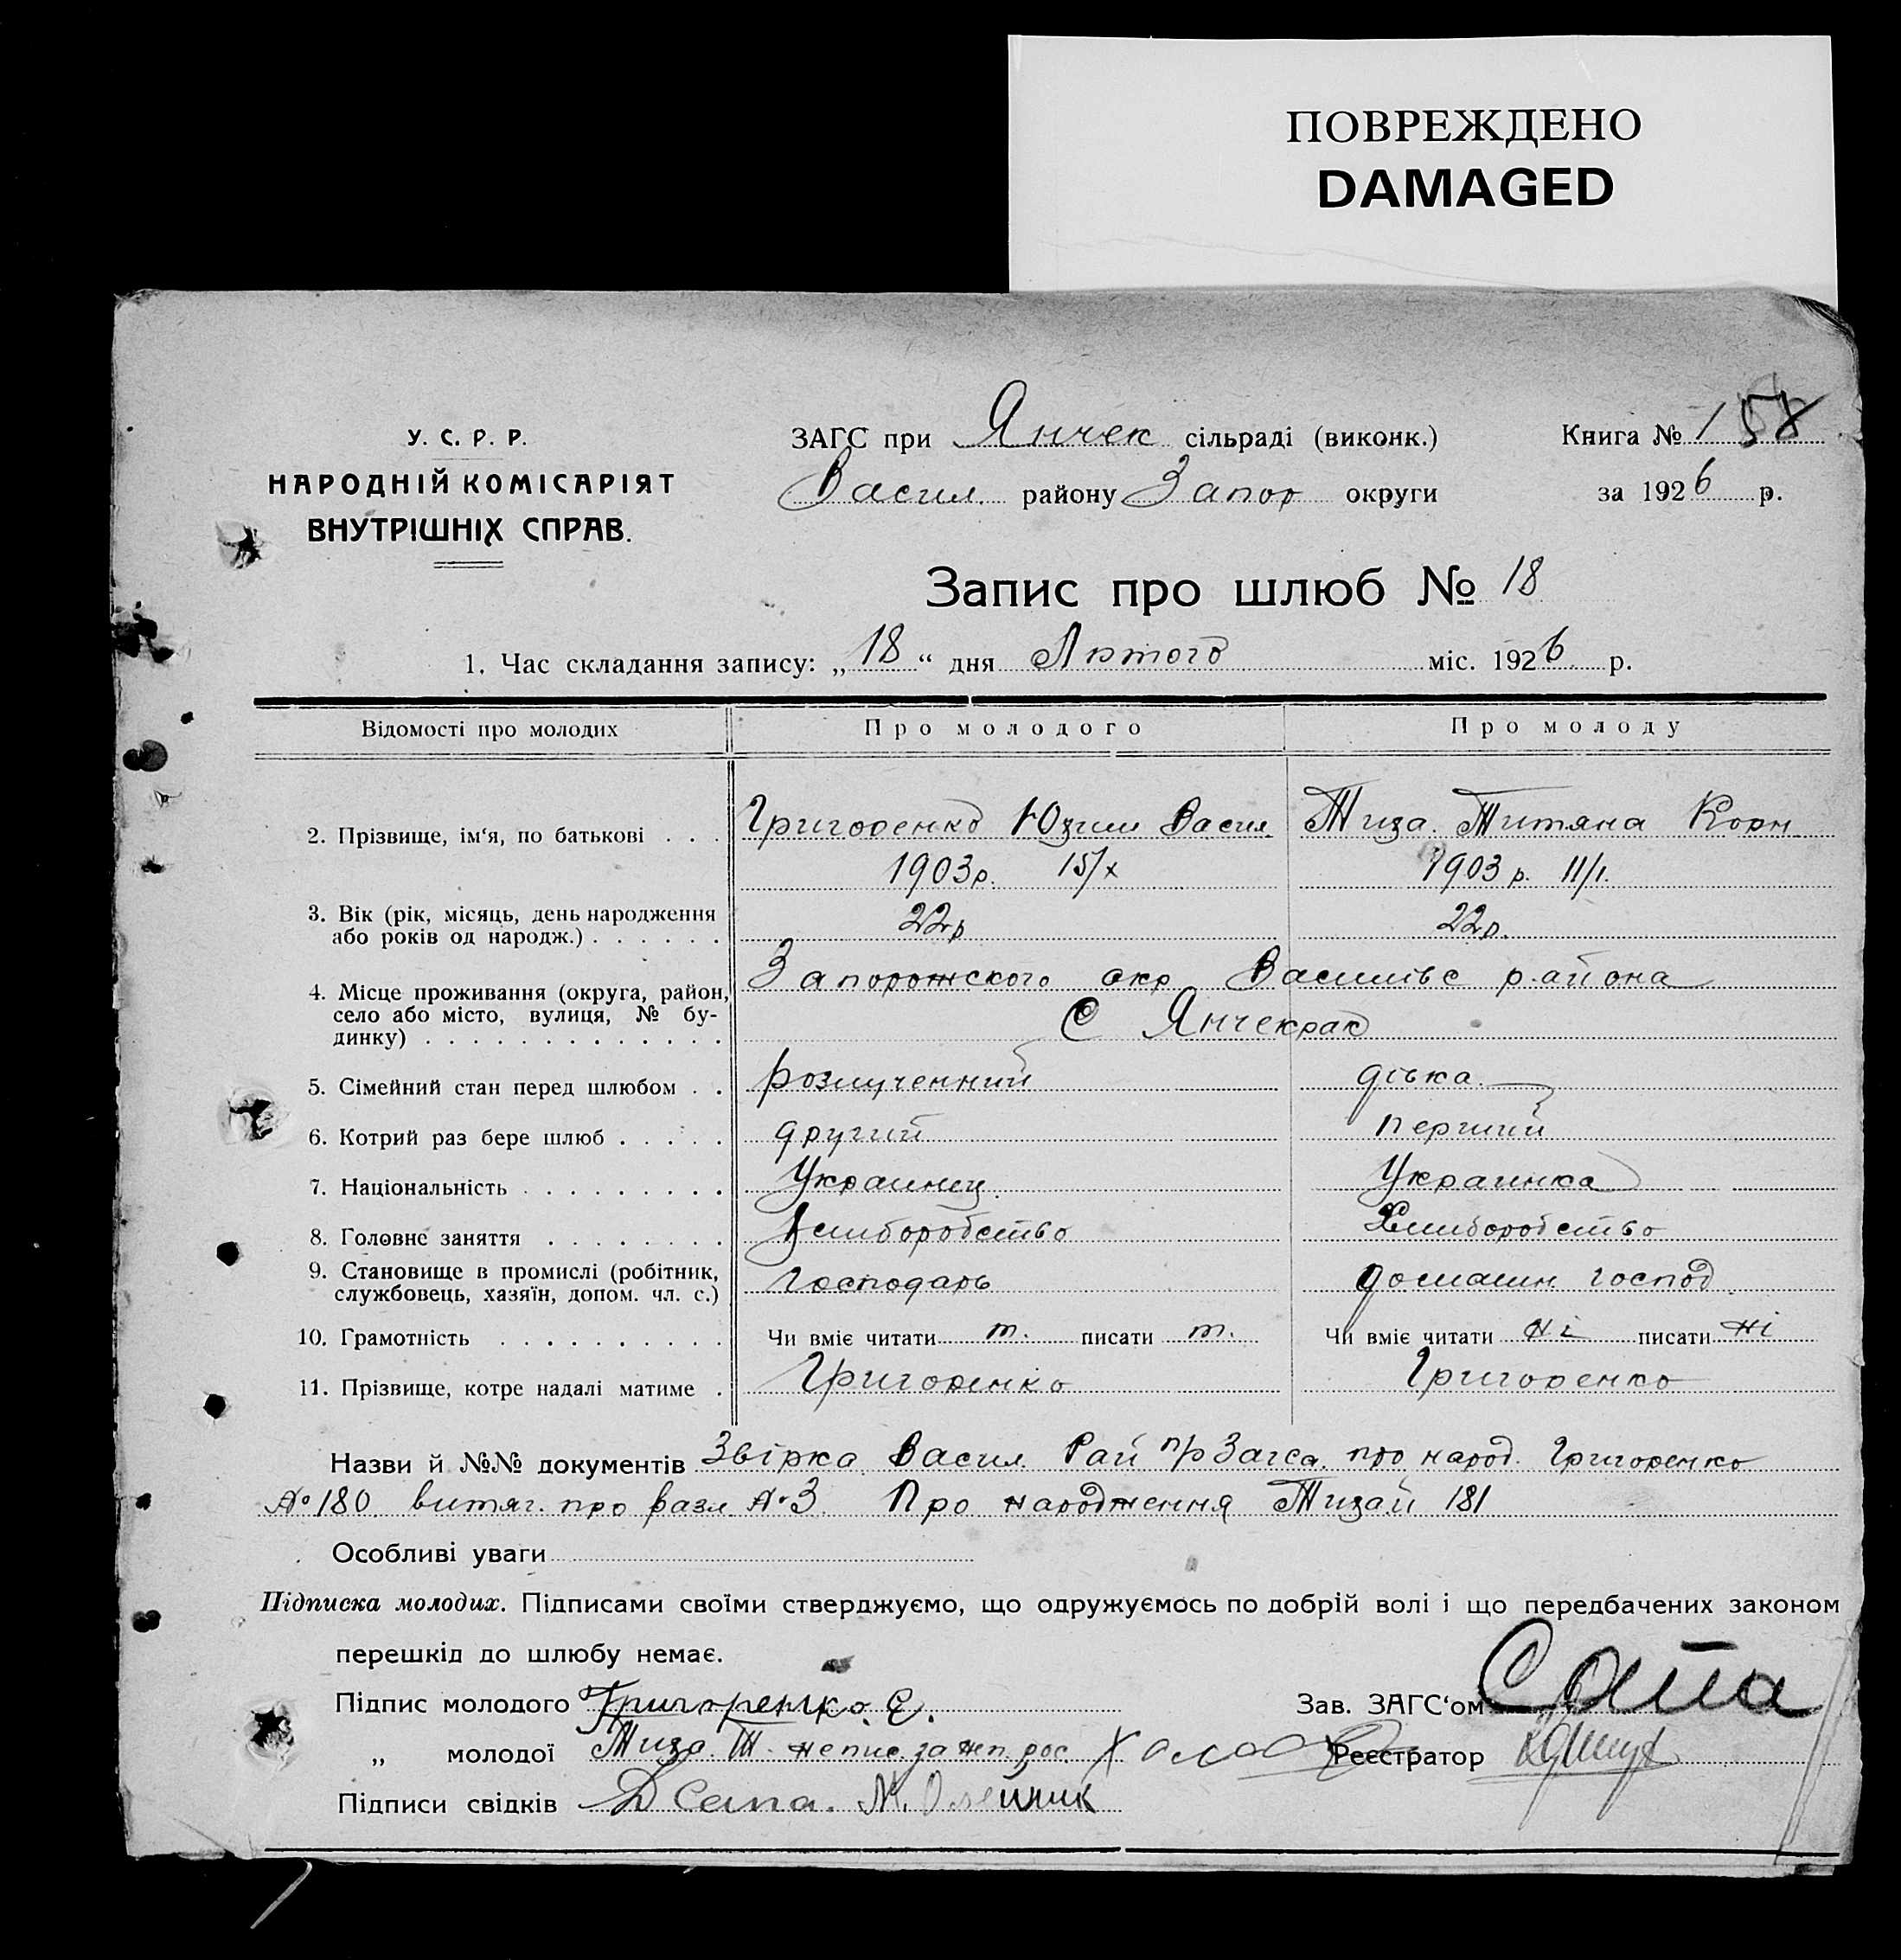 ПОВРЕЖДЕНО
DAMAGED
У. С. Р. Р.
НАРОДНІЙ КОМІСАРІЯТ
ВНУТРІШНІХ СПРАВ.
ЗАГС при Янчек сільраді (виконк.)
Васил. району Запор округи
Книга № 1 58
за 1926 р.
Запис про шлюб № 18
1. Час складання запису: „18“ дня Лютого міс. 1926 р.
Відомості про молодих Про молодого Про молоду
2. Прізвище, ім‘я, по батькові . . . Григоренко Юхим Васил Тиза. Титяна Корн.
1903р. 15/х 1903 р. 11/1.
3. Вік (рік, місяць, день народження
або років од народж.) . . . . . . 22р 22р.
4. Місце проживання (округа, район,
село або місто, вулиця, № бу-
динку) . . . . . . . . . . . . .
Запорожского окр Василівс района
С Янчекрак
5. Сімейний стан перед шлюбом . . розлученний дівка
6. Котрий раз бере шлюб . . . . . другий перший
7. Національність . . . . . . . . . Украинец. Украинка
8. Головне заняття . . . . . . . . Хлиборобство Хлиборобство
9. Становище в промислі (робітник,
службовець, хазяїн, допом. чл. с.) господарь домашн. господ
10. Грамотність . . . . . . . . . . Чи вміє читати т. писати т. Чи вміє читати ні писати ні
11. Прізвище, котре надалі матиме . Григоренко Григоренко
Назви й №№ документів Звірка Васил. Рай п/р Загса. про народ. Григоренко
№ 180 витяг. про разл. № 3. Про народження Тизай 181
Особливі уваги
Підписка молодих. Підписами своїми стверджуємо, що одружуємось по добрій волі і що передбачених законом
перешкід до шлюбу немає.
Підпис молодого Григоренко. Є.
Зав. ЗАГС‘ом Сапа
„ молодої Тиза. Т. непис. за неп. рос.
Реєстратор
Підписи свідків Д Сапа. М. Олейник